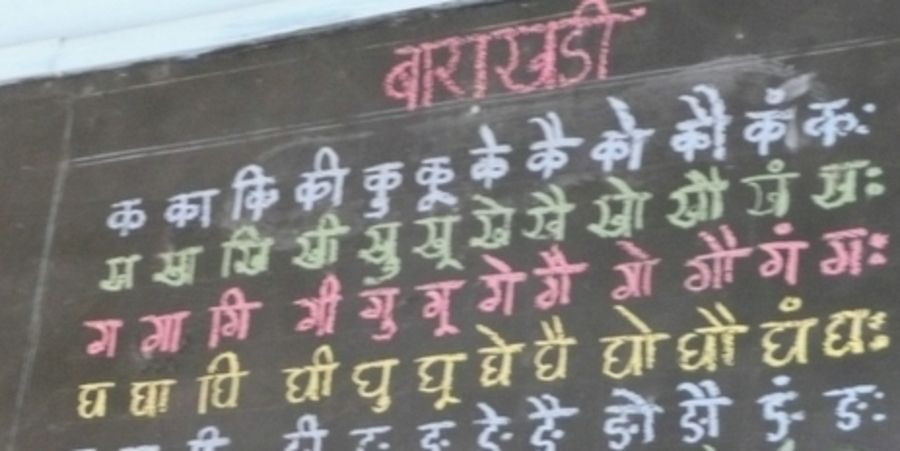 बाराखडी
क का कि की कु कू के कै को कौ कं कः
ख खा खि खी खु खू खे खै खो खौ खं खः
ग गा गि गी गु गू गे गै गो गौ गं गः
घ घा घि घी घु घू घे घै घो घौ घं घः
ङु ङू ङे ङै ङो ङौ ङं ङः